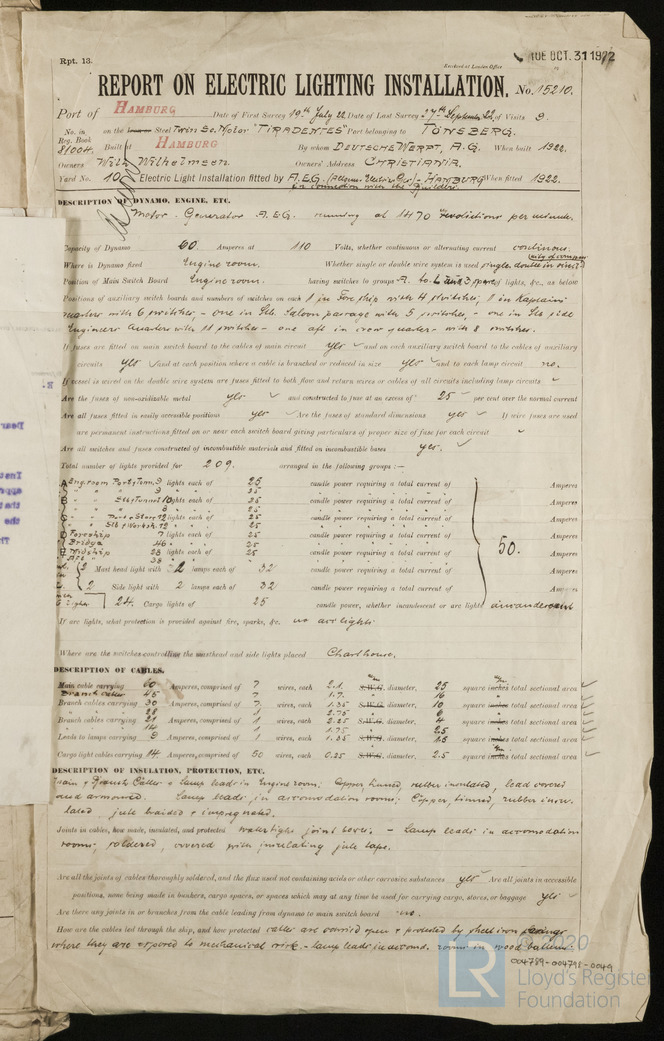 Rpt. 13.
Received at London Office
TUE OCT. 31 1922
REPORT ON ELECTRIC LIGHTING INSTALLATION. No. 15210.
Port of HAMBURG Date of First Survey 19th July 22 Date of Last Survey 27th September 22 No. of Visits 9.
No. in Reg. Book on the Steel Twin Sc. Motor "TIRADENTES" Port belonging to TÖNSBERG.
81004 Built at HAMBURG By whom DEUTSCHE WERFT, A.G. When built 1922.
Owners Wilh. Wilhelmsen Owners' Address CHRISTIANIA.
Yard No. 10 Electric Light Installation fitted by A.E.G. HAMBURG When fitted 1922.
in connection with the Builders
DESCRIPTION OF DYNAMO, ENGINE, ETC.
Motor-Generator A.E.G. running at 1470 revolutions per minute.
Capacity of Dynamo 60 Amperes at 110 Volts, whether continuous or alternating current continous.
Where is Dynamo fixed Engine room. Whether single or double wire system is used single, double in
Position of Main Switch Board Engine room. having switches to groups A to L of lights, &c., as below
Positions of auxiliary switch boards and numbers of switches on each 1 in Foreship with 4 switches, 1 in Kaptains
quarters with 6 switches, - one in Saloon passage with 5 switches, - one in
Engineers Quarters with 11 switches - one aft in crow quarters with 8 switches.
If fuses are fitted on main switch board to the cables of main circuit yes and on each auxiliary switch board to the cables of auxiliary
circuits yes and at each position where a cable is branched or reduced in size yes and to each lamp circuit no.
If vessel is wired on the double wire system are fuses fitted to both flow and return wires or cables of all circuits including lamp circuits
Are the fuses of non-oxidizable metal yes and constructed to fuse at an excess of 25 per cent over the normal current
Are all fuses fitted in easily accessible positions yes Are the fuses of standard dimensions yes If wire fuses are used
are permanent instructions fitted on or near each switch board giving particulars of proper size of fuse for each circuit
Are all switches and fuses constructed of incombustible materials and fitted on incombustible bases yes.
Total number of lights provided for 209. arranged in the following groups :—
A Eng. room Port 9 lights each of 25 candle power requiring a total current of Amperes
" 9 " 25
B Stb. Tunnel 10 lights each of 25 candle power requiring a total current of Amperes
" 8 " 25
C 12 lights each of 25 candle power requiring a total current of Amperes
Stb. Worksh. 12 " 25
D Foreship 7 lights each of 25 candle power requiring a total current of Amperes
Bridge 46 " 25 50.
E Midship 28 lights each of 25 candle power requiring a total current of Amperes
Aft 38
2 Mast head light with 2 lamps each of 32 candle power requiring a total current of Amperes
2 Side light with 2 lamps each of 32 candle power requiring a total current of Amperes
24 Cargo lights of 25 candle power, whether incandescent or arc lights incandescent
If arc lights, what protection is provided against fire, sparks, &c. no arc lights
Where are the switches controlling the masthead and side lights placed Charthouse.
DESCRIPTION OF CABLES.
Main cable carrying 60 Amperes, comprised of 7 wires, each 2.1 S.W.G. diameter, 25 square inches total sectional area
Branch cable 45 7 1.7 16
Branch cables carrying 30 Amperes, comprised of 7 wires, each 1.35 S.W.G. diameter, 10 square inches total sectional area
28 1 2.75 6
Branch cables carrying 21 Amperes, comprised of 1 wires, each 2.25 S.W.G. diameter, 4 square inches total sectional area
14 1 1.75 2.5
Leads to lamps carrying 9 Amperes, comprised of 1 wires, each 1.35 S.W.G. diameter, 1.5 square inches total sectional area
Cargo light cables carrying 14 Amperes, comprised of 50 wires, each 0.25 S.W.G. diameter, 2.5 square inches total sectional area
DESCRIPTION OF INSULATION, PROTECTION, ETC.
Main & Branch Cables & lamp leads in Engine room: Copper tinned, rubber insulated, lead covered
and armoured. Lamp leads, in accomodation rooms: Copper, tinned, rubber insu-
lated, jute braided & impregnated.
Joints in cables, how made, insulated, and protected watertight joint boxes. - Lamp leads in accomodation
rooms, soldered, covered with insulating jute tape.
Are all the joints of cables thoroughly soldered, and the flux used not containing acids or other corrosive substances yes Are all joints in accessible
positions, none being made in bunkers, cargo spaces, or spaces which may at any time be used for carrying cargo, stores, or baggage yes
Are there any joints in or branches from the cable leading from dynamo to main switch board no.
How are the cables led through the ship, and how protected cables are carried open & protected by sheet iron casings
where they are exposed to mechanical risk - lamp leads in accomd. rooms in wood battens
004789-004798-0049
© 2020
LR
Lloyd's Register
Foundation